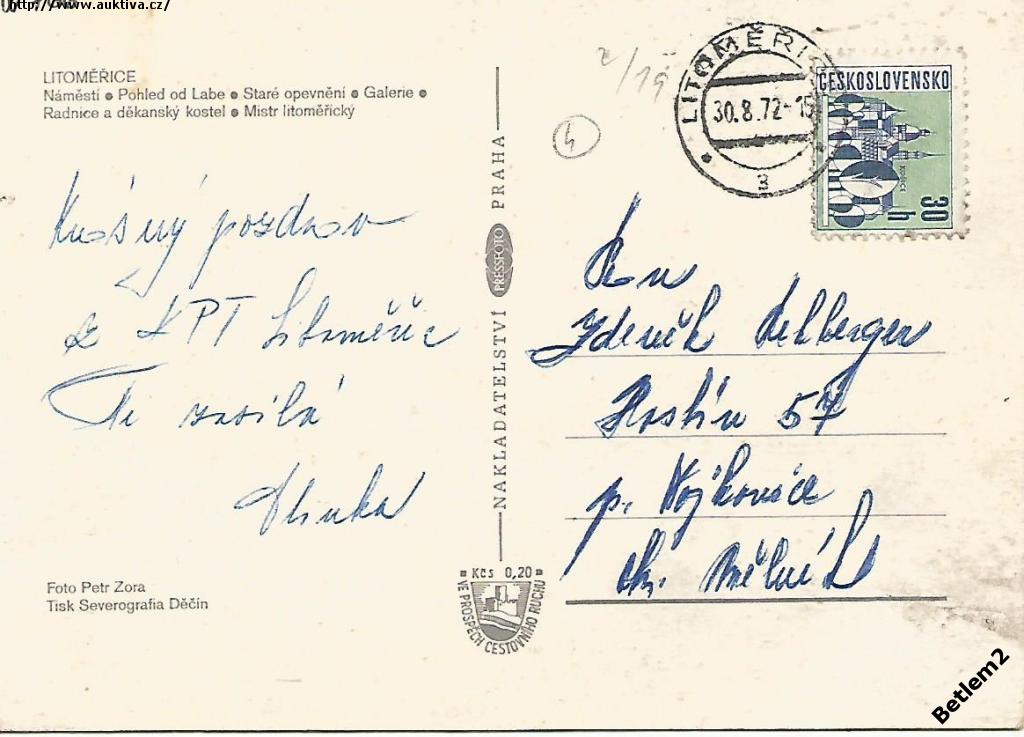 http://www.auktiva.cz/
LITOMĚŘICE
Náměstí ● Pohled od Labe ● Staré opevnění ● Galerie ●
Radnice a děkanský kostel ● Mistr litoměřický
Krásný pozdrav
z KPT Litoměřic
Ti zasílá
Foto Petr Zora
Tisk Severografia Děčín
NAKLADATELSTVÍ PRESSFOTO PRAHA
Kčs 0,20
VE PROSPĚCH CESTOVNÍHO RUCHU
2/19
4
30.8.72-15
ČESKOSLOVENSKO
KOŠICE
30 h
Zdeněk
Hostín 57
p. Vojkovice
ok. Mělník
Betlem2